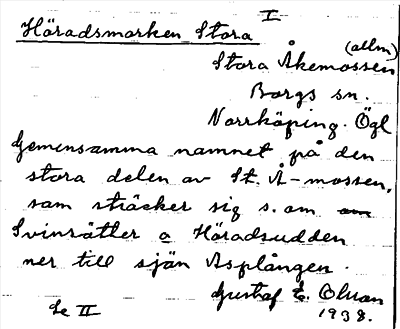 I
Häradsmarken Stora
(allm)
Stora Åkemossen
Borgs sn.
Norrköping. Ögl
Gemensamma namnet på den
stora delen av St. Å-mossen,
som sträcker sig s. om om
Svinsätter o Häradsudden
ner till sjön Asplången.
Gustaf E. Olson
Se II 1938.